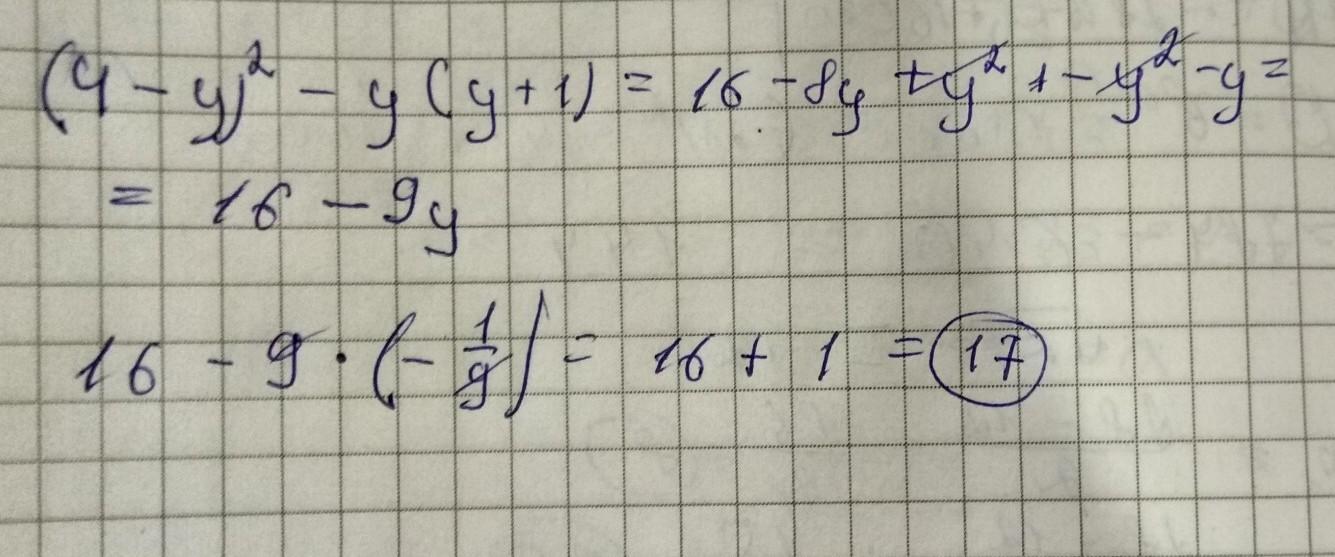 (4 - y)² - y (y + 1) = 16 - 8y + y² + - y² - y =
= 16 - 9y
16 - 9 · (- 1/9) = 16 + 1 = 17